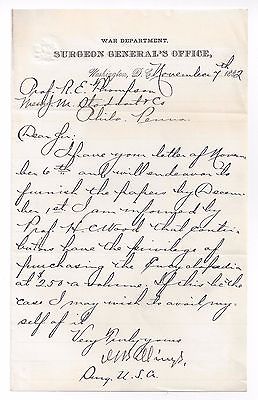 WAR DEPARTMENT,
SURGEON GENERAL'S OFFICE,
Washington, D.C. November 7th 1882
Prof. R. E. Thompson
M. Stoddart & Co
Phila. Penna.
Dear Sir:
I have your letter of Novem
ber 6th and will endeavor to
furnish the papers by Decem
ber 1st. I am informed by
Prof. H. C. Wood that contri
butors have the privilege of
purchasing the Encyclopædia
at $2.50 a volume. If this be the
case I may wish to avail my
self of it.
Very truly yours
J. S. Billings,
Surg. U.S.A.